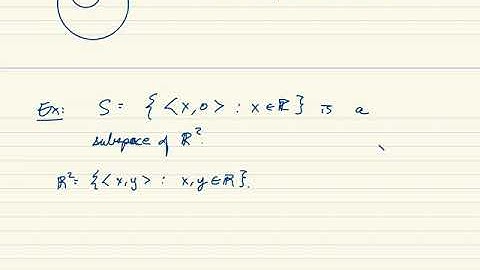 Ex: S = { <x,0> : x∈ℝ} is a
subspace of ℝ².
ℝ² = {<x,y> : x,y∈ℝ}.